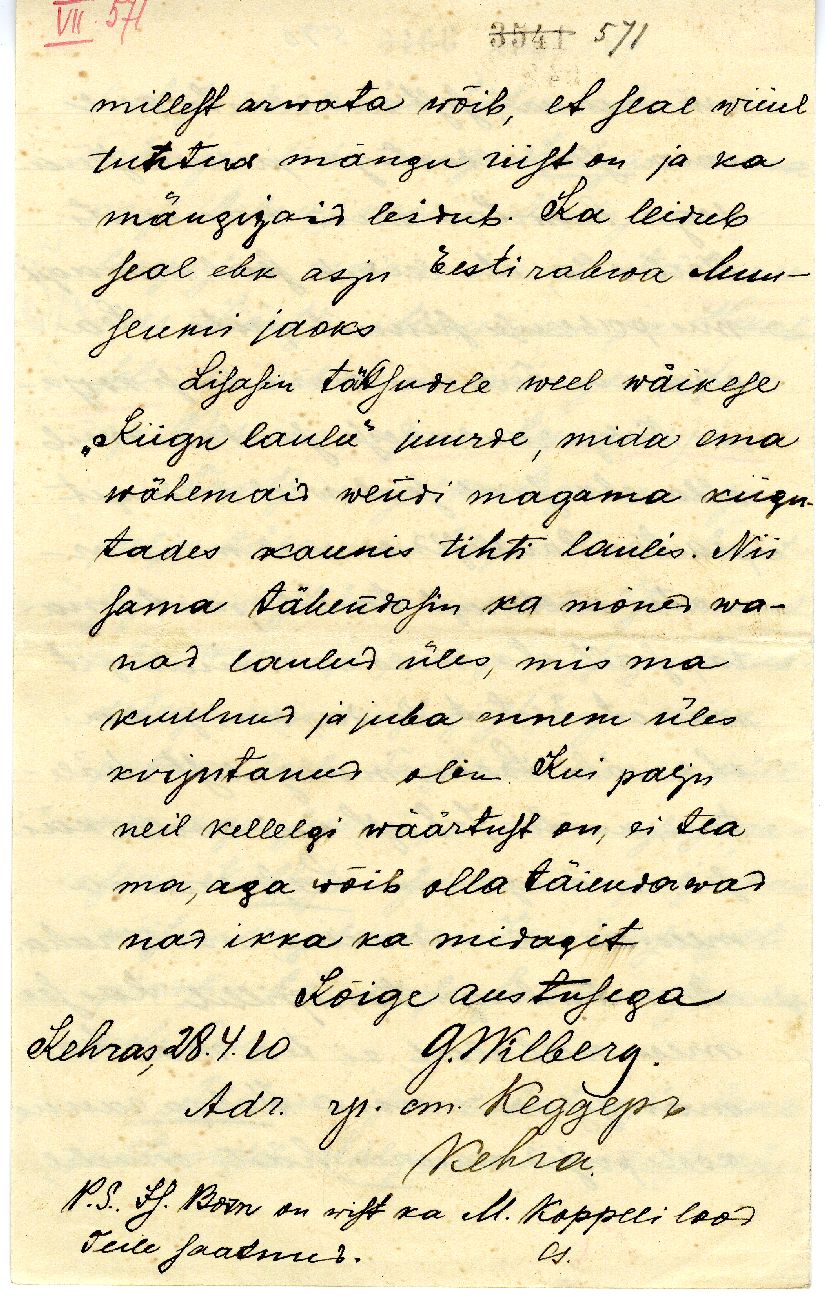 VII 571
3541 571
millest arwata wõib, et seal wiiul
tuntud mängu riist on ja ka
mängijaid leidub. Ka leidub
seal ehk asju Eesti rahwa Muu-
seumi jaoks
Lisasin tähtsudele weel wäikese
„Kiigu laulu“ juurde, mida ema
wähemaid wendi magama kiigu-
tades kaunis tihti laulis. Nii
sama tähendasin ka mõned wa-
nad laulud üles, mis ma
kuulnud ja juba ennem üles
kirjutanud olin. Kui palju
neil kellelgi wäärtust on, ei tea
ma, aga wõib olla täiendawad
nad ikka ka midagit
Kõige austusega
Kehras, 28.4.10 G. Wilberg.
Adr. ст. Кеддеръ
Kehra.
P.S. on wist ka M. Koppeli lood
Teile saatnud.